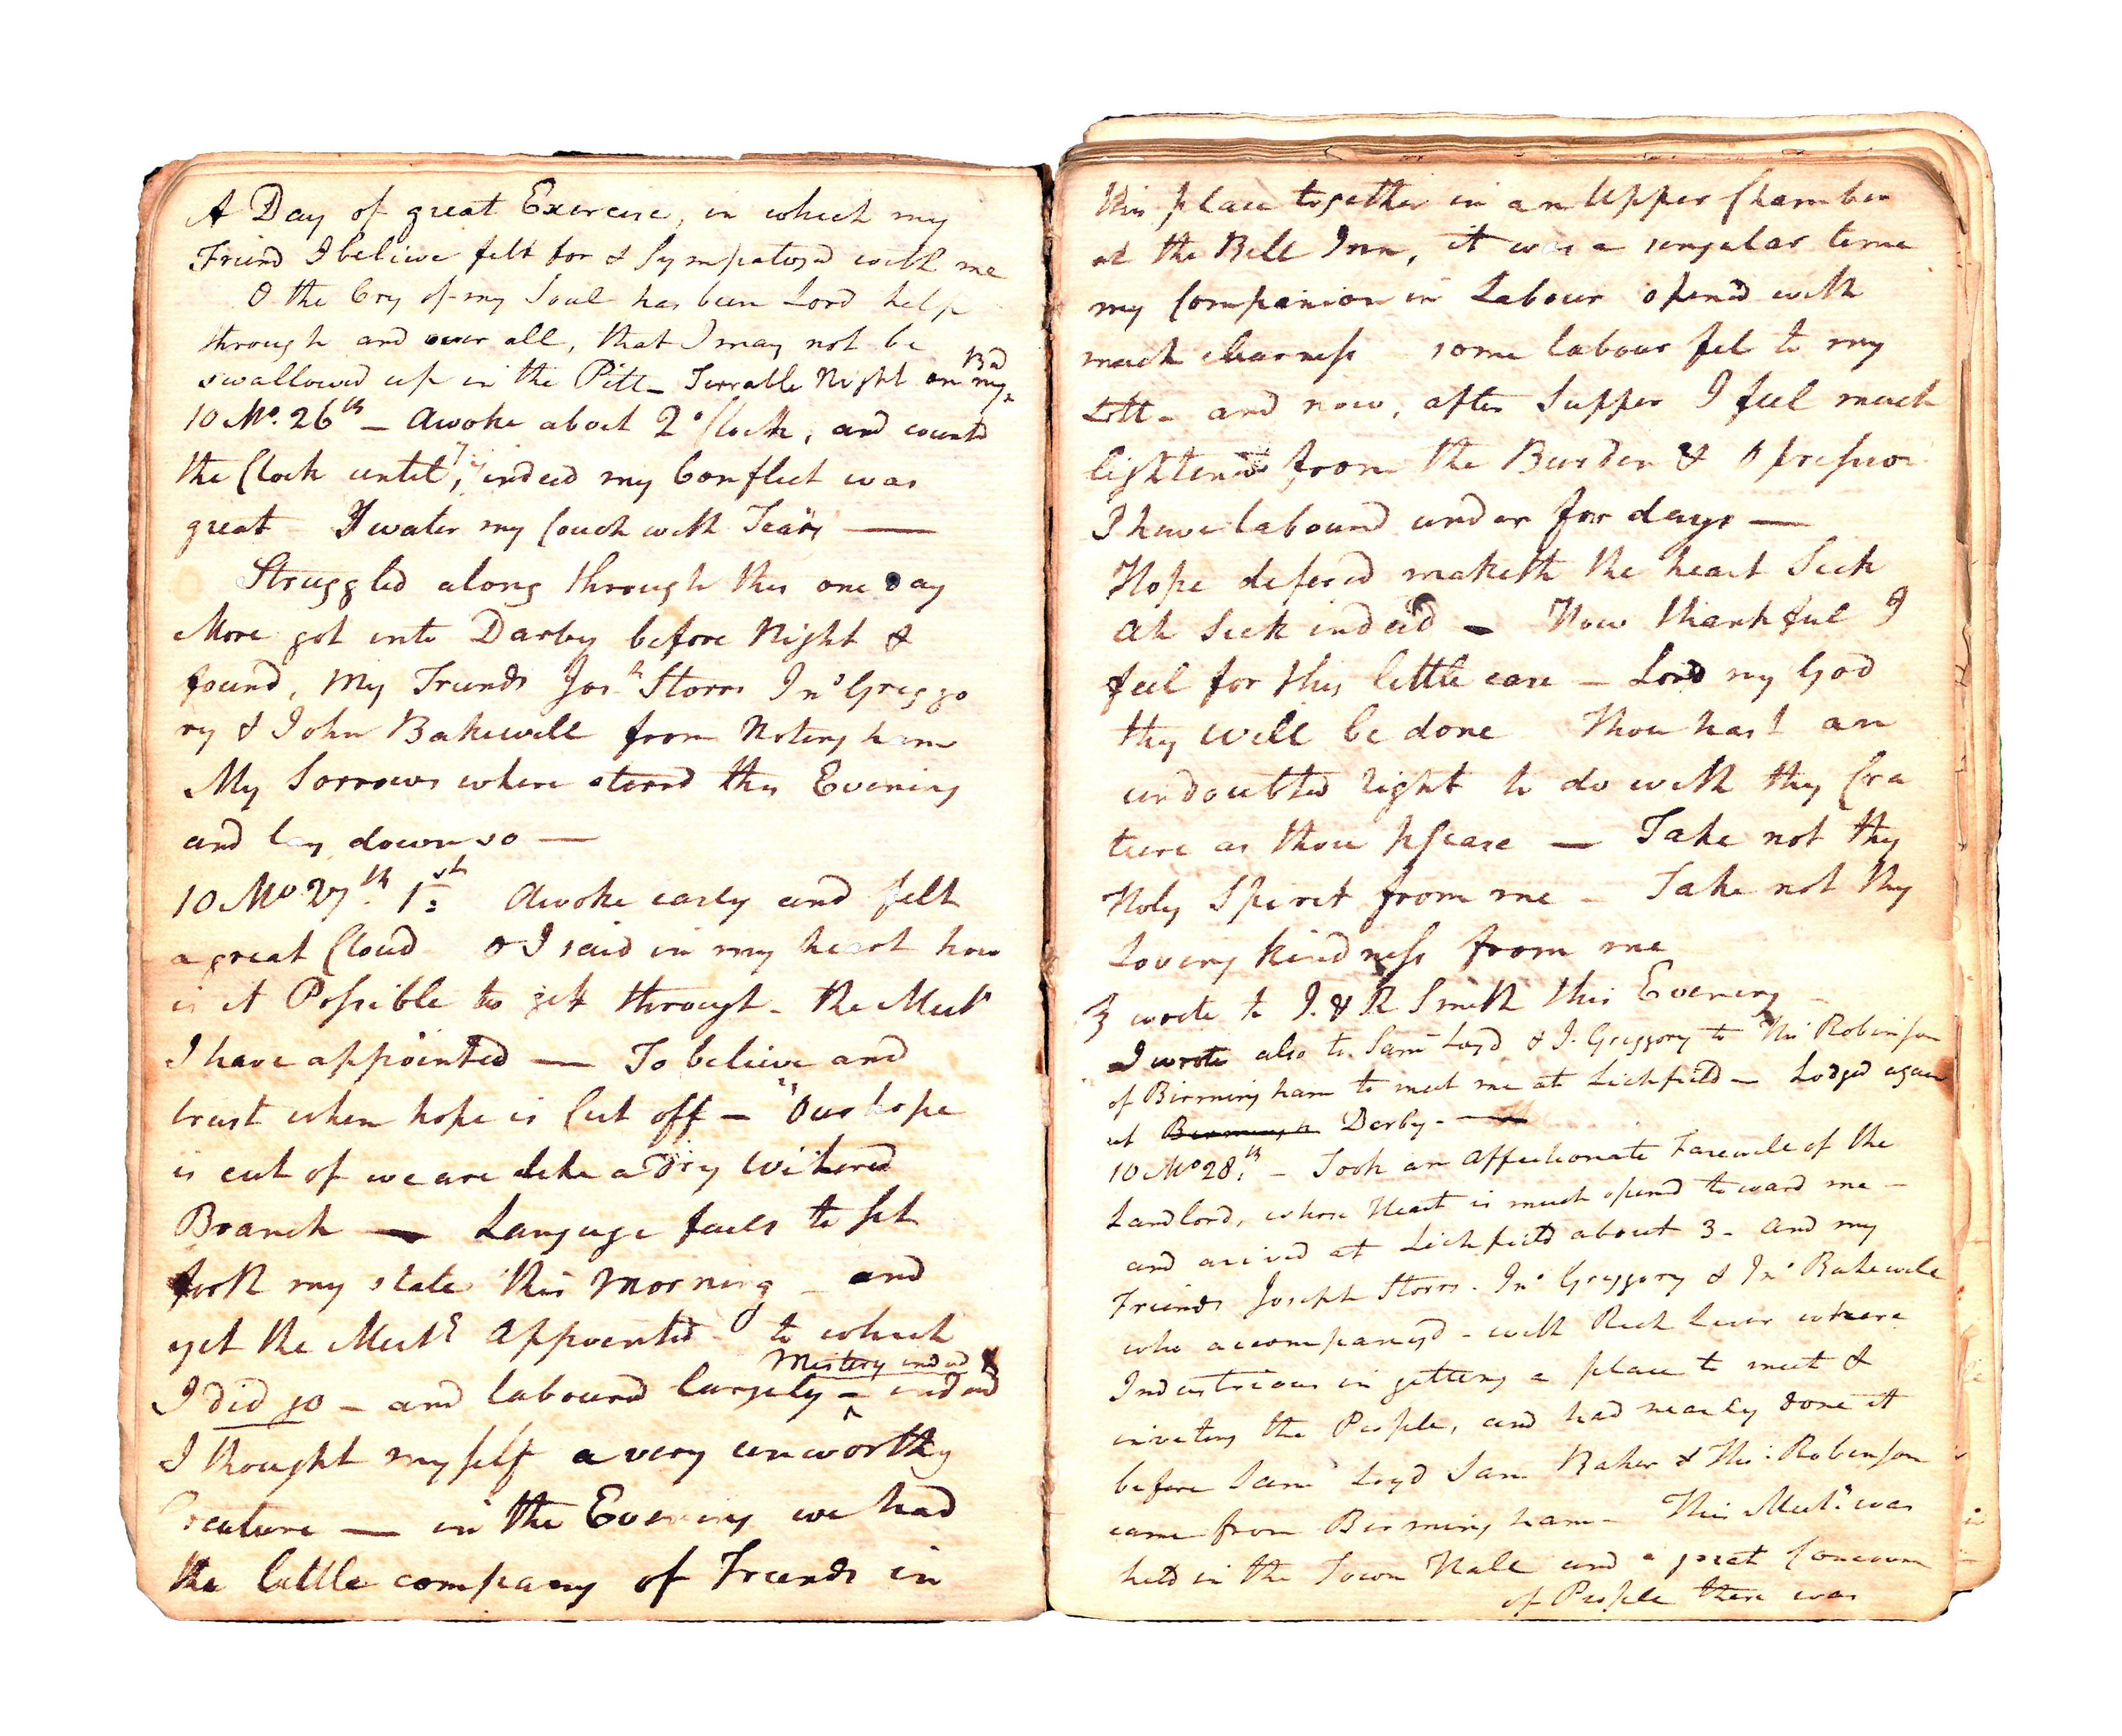 A Day of great Exercise, in which my
Friend I believe felt for & Sympatosd with me
O the Cry of my Soul has been Lord help
through and over all, that I may not be
swallowed up in the Pitt - Terrable Night on my Bd
10 Mo. 26th - Awoke about 2 oClock, and countd
the Clock until 7, indeed my Conflict was
great - I water my Couch with Tears —
Struggled along through this one Day
More got into Darby before Night &
found, My Friends Josh Storrs Jno Greggo
ry & John Bakewell from Notingham
My Sorrows where stored this Evening
and lay down so —
10 Mo 27th. 1st Awoke early and felt
a great Cloud O I said in my heart how
is it Possible to gett through - the Meetg
I have appointed — To believe and
trust when hope is Cut off - "Our hope
is cut of we are like a Dry Witherd
Branch — Languge fails to set
forth my state this Morning - and
yet the Meetg Appointed - to which
I did go - and labourd largely - Mistery indeed & indeed
I thought myself a very unworthy
Creature — in the Evening we had
the little company of Friends in
this place together in an Upper Chamber
at the Bell Inn, it was a singular time
my Companion in Labour opend with
much clearness some labour fel to my
Lott - and now, after Supper I feel much
lightend from the Burden & Opression
I have labourd under for days —
Hope deferd maketh the heart Sick
Ah Sick indeed - How thankful I
feel for this little ease - Lord my God
thy Will be done Thou hast an
undoubted right to do with thy Cra
ture as thou please — Take not thy
Holy Spirit from me - Take not thy
Loving kindness from me
I wrote to J. & R Smith this Evening -
I wrote also to Saml Loyd & J. Greggory to Tho Robinson
of Birmingham to meet me at Lichfield - Lodged again
at Birmingh Derby -
10 Mo 28th. - Took an Affectionate Farewell of the
Landlord, whose Heart is much opend toward me -
and arived at Lichfield about 3 - and my
Friends Joseph Storrs. Jno Greggory & Jno Bakewell
who accompanyd - with Rich Lever where
Industrious in getting a place to meet &
inviting the People, and had nearly done it
before Saml Loyd Saml Baker & Tho: Robinson
came from Birmingham - This Meetg was
held in the Town Hall and a great Concourse
of People there was